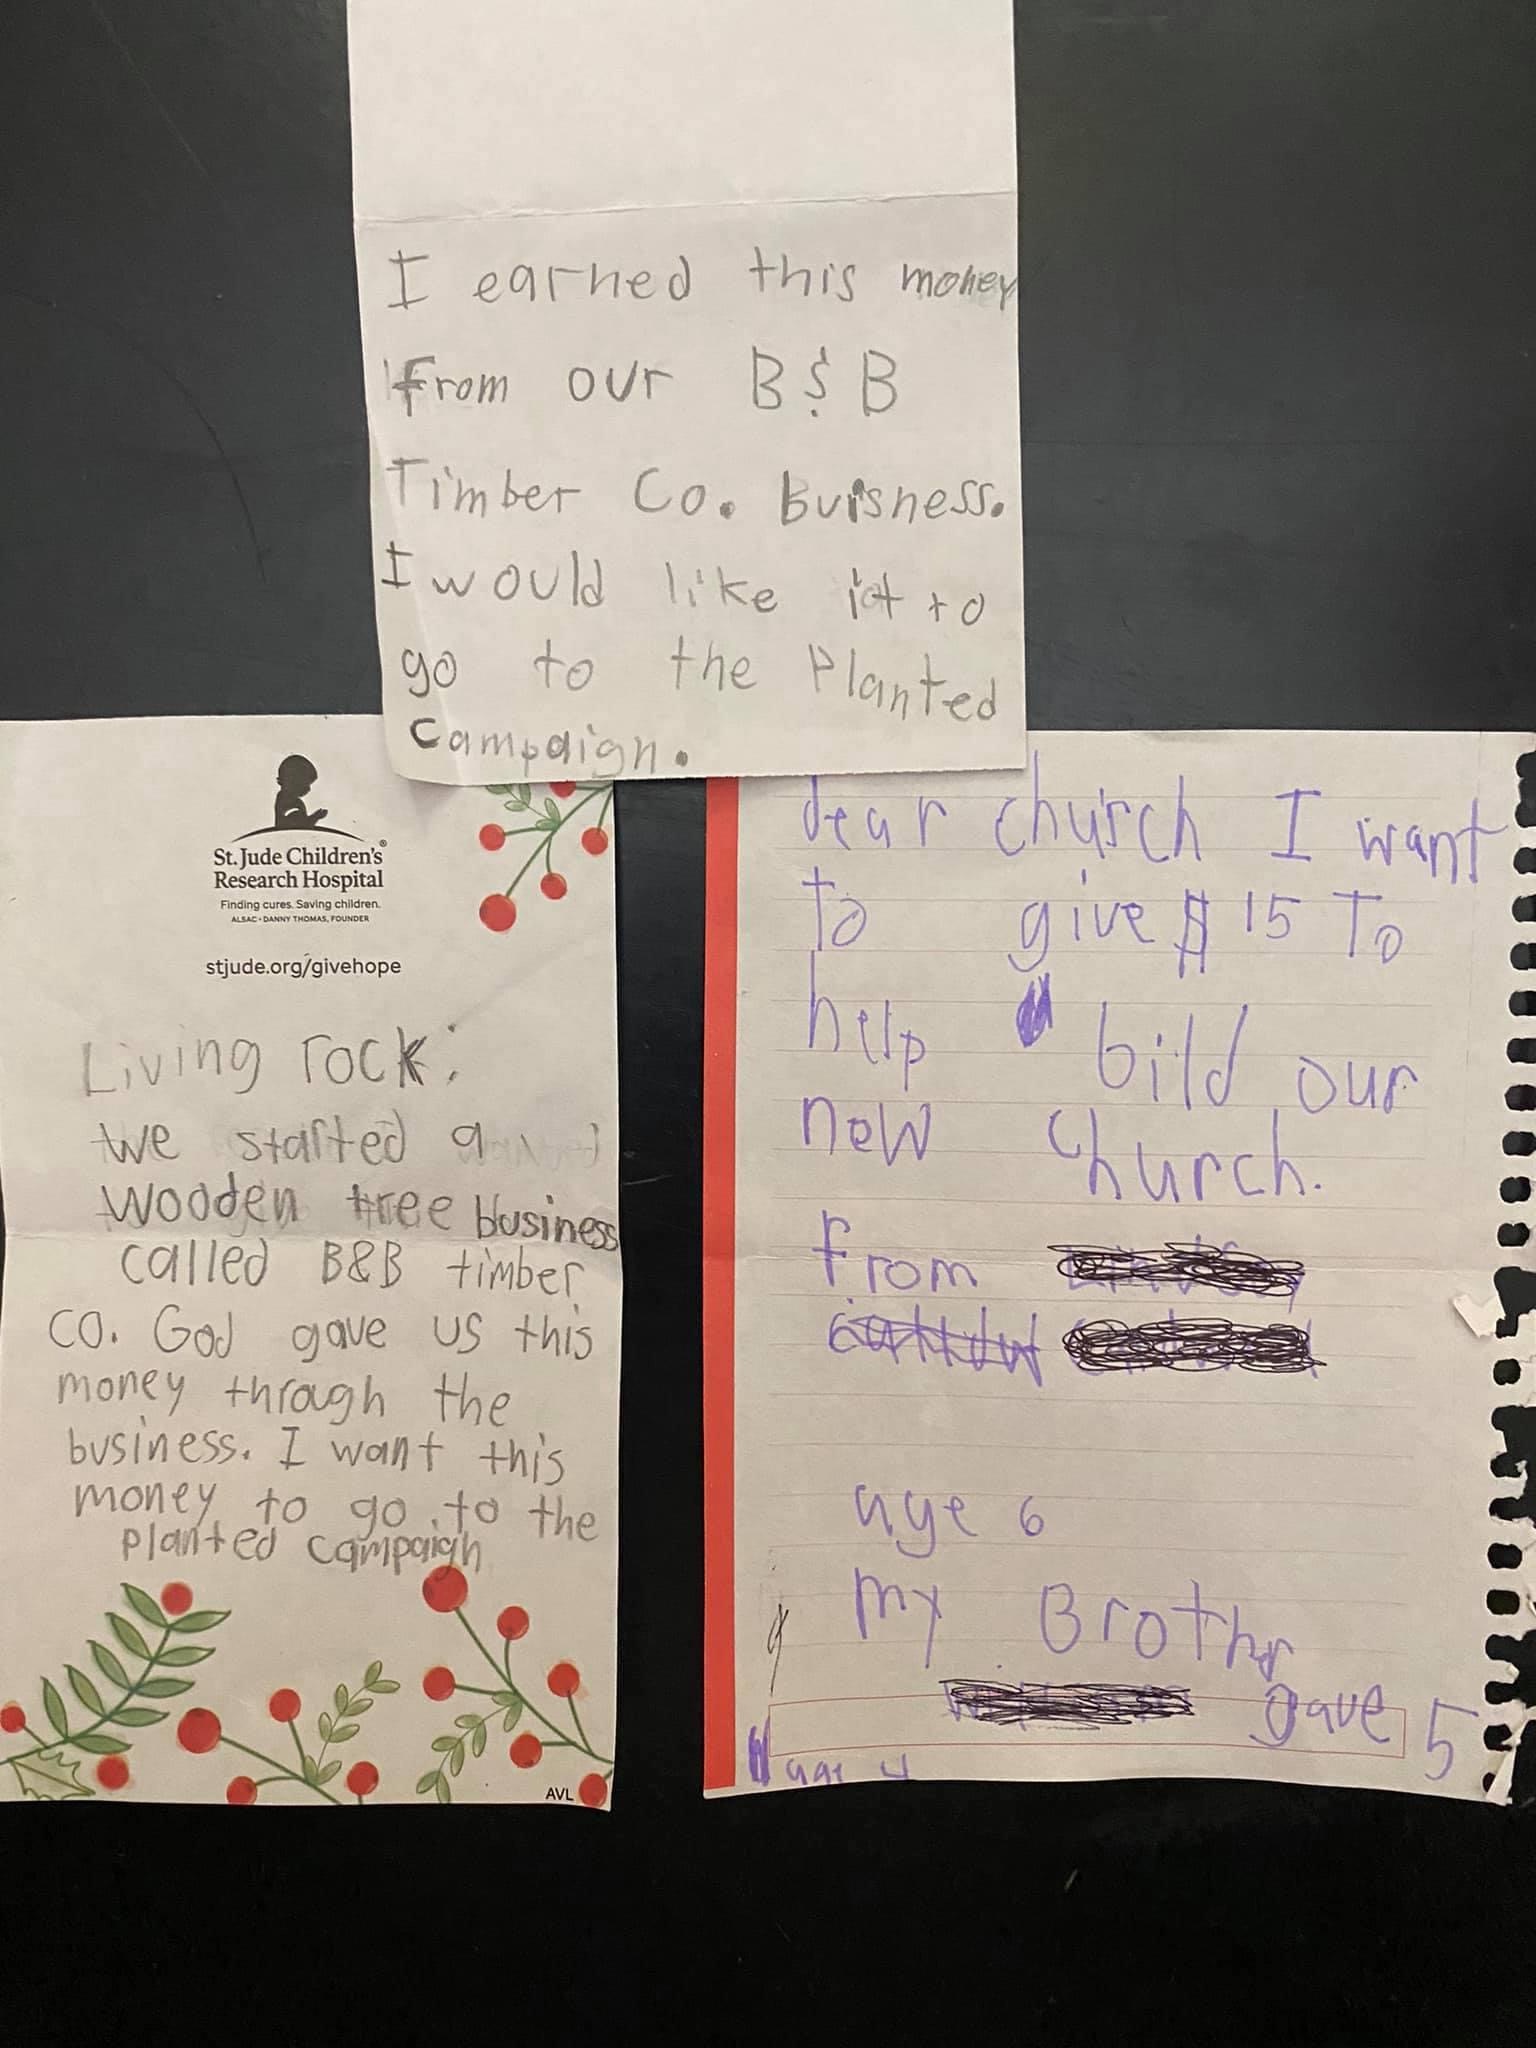 I earned this money
from our B & B
Timber Co. Buisness.
I would like it to
go to the Planted
Campaign.
St. Jude Children's®
Research Hospital
Finding cures. Saving children.
ALSAC • DANNY THOMAS, FOUNDER
stjude.org/givehope
Living rock:
We started a
wooden tree business
called B&B timber
co. God gave us this
money through the
business. I want this
money to go to the
planted campaign
AVL
dear church I want
to give $ 15 To
help bild our
new Church.
From
age 6
my Brothr
gave 5
age 4